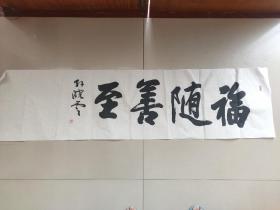 福随善至